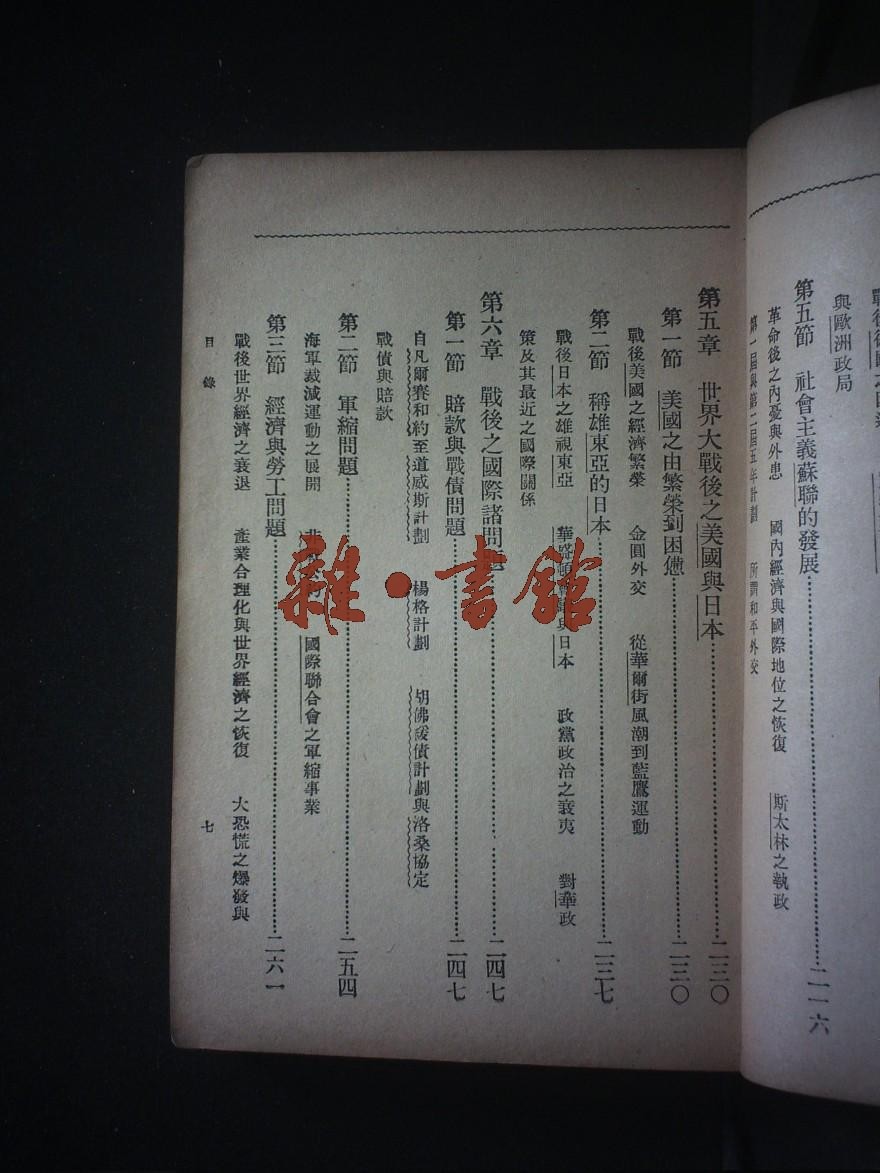 與歐洲政局
第五節 社會主義蘇聯的發展……二一六
革命後之內憂與外患 國內經濟與國際地位之恢復 斯太林之執政
第一屆與第二屆五年計劃 所謂和平外交
第五章 世界大戰後之美國與日本……二三〇
第一節 美國之由繁榮到困憊……二三〇
戰後美國之經濟繁榮 金圓外交 從華爾街風潮到藍鷹運動
第二節 稱雄東亞的日本……二三七
戰後日本之雄視東亞 華盛頓會議與日本 政黨政治之衰夷 對華政
策及其最近之國際關係
第六章 戰後之國際諸問題……二四七
第一節 賠款與戰債問題……二四七
自凡爾賽和約至道威斯計劃 楊格計劃 胡佛緩債計劃與洛桑協定
戰債與賠款
第二節 軍縮問題……二五四
海軍裁減運動之展開 國際聯合會之軍縮事業
第三節 經濟與勞工問題……二六一
戰後世界經濟之衰退 產業合理化與世界經濟之恢復 大恐慌之爆發與
目錄 七
雜·書館